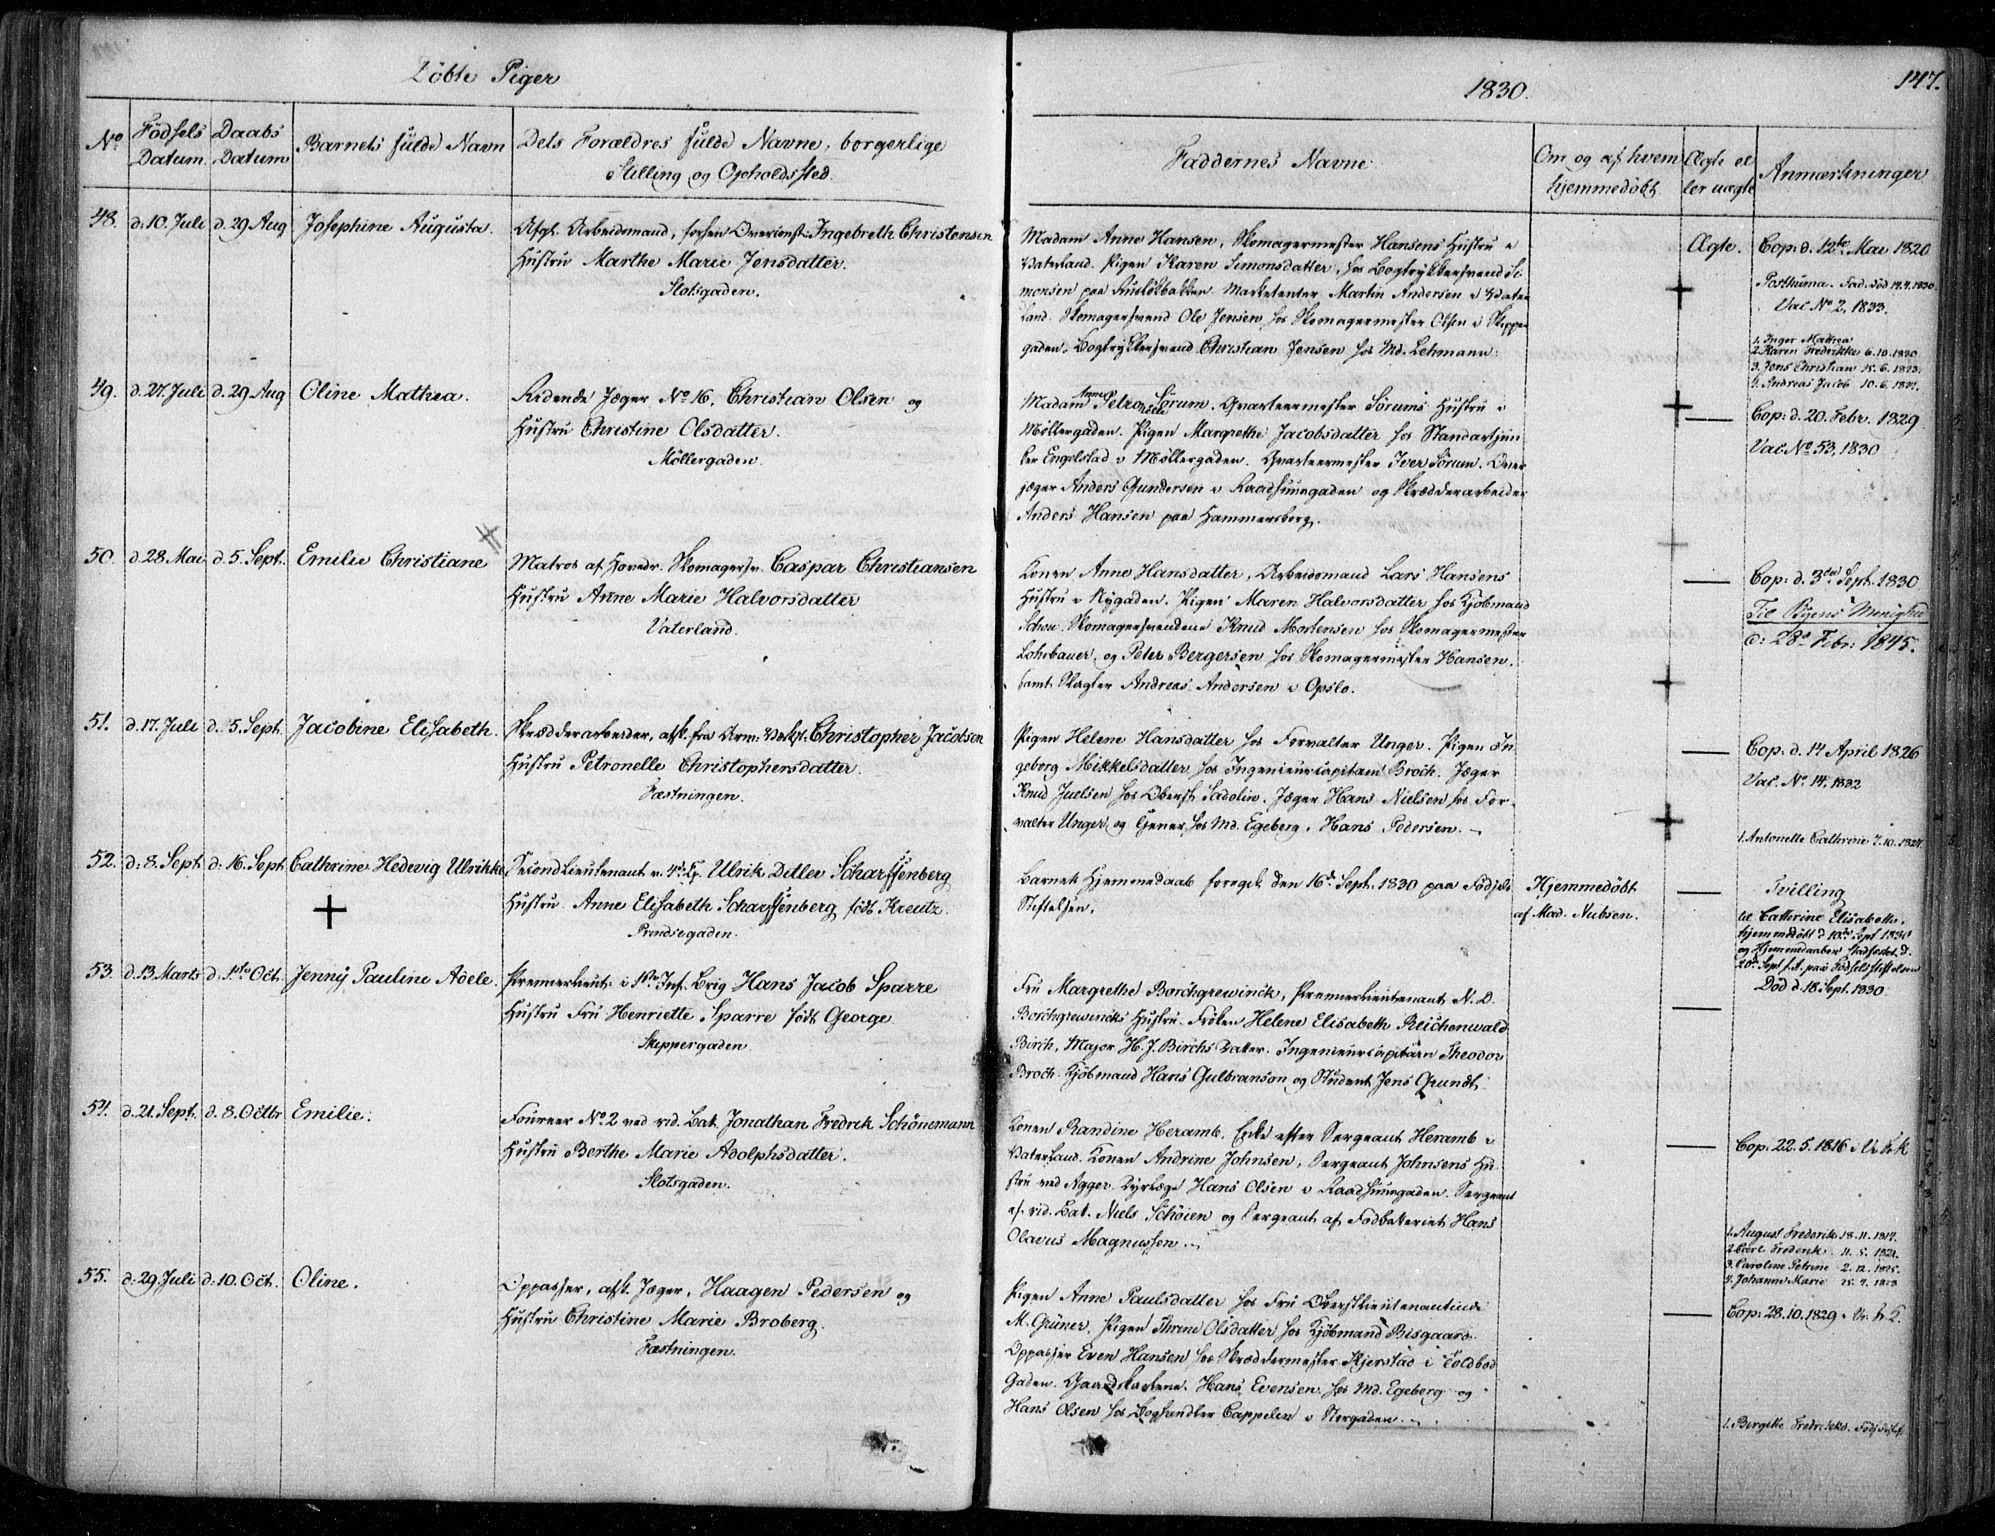 Döbte Piger
1830.
147.
No
Födsels Datum.
Daabs Datum
Barnets fulde Navn
Dets Forældres fulde Navne, borgerlige
Stilling og Opholdssted.
Faddernes Navne
Om og af hvem
hjemmedöbt
Ægte el
ler uægte
Anmærkninger
48. d: 10. Juli d. 29 Aug Josephine Augusta.
Afgl. Arbeidsmand, Ingebreth Christensen
Hustru Marthe Marie Jensdatter.
Slotsgaden.
Madam Anne Hansen, Skomagermester Hansens Hustru i
Vaterland. Pigen Karen Simonsdatter, hos Bogtrykkersvend Si
monsen paa Marketenter Martin Andersen i Vater
land. Skomagersvend Ole Jensen hos Skomagermester Olsen i Skipper
gaden. Bogtrykkersvend Christian Jensen hos Md. Lehmann.
Ægte.
Cop: d. 12te Mai 1820
Posthuma. Fad. död 14.4.1830
Vac No 2, 1833.
1. Inger Mathea
2. Karen Fredrikke 6.10.1820
3. Jens Christian 15.6.1823.
4. Andreas Jacob 10.6.1827.
49. d. 27. Juli d. 29 Aug Oline Mathea.
Ridende Jæger No 16, Christian Olsen og
Hustru Christine Olsdatter.
Möllergaden.
Madam Anne Petronelle Sörum. Qvarteermester Sörums Hustru i
Möllergaden. Pigen Margrethe Jacobsdatter hos Standartjun
ker Engelstad i Möllergaden. Qvarteermester Iver Sörum. Over
jæger Anders Gundersen i Raadhuusgaden og Skrædderarbeider
Anders Hansen paa Hammersborg.
Cop: d. 20. Febr. 1829
Vac. No 53, 1830
50. d. 28. Mai d. 5. Sept. Emilie Christiane
Matros af Hovedr. Skomagersv. Caspar Christiansen
Hustru Anne Marie Halvorsdatter
Vaterland.
Konen Anne Hansdatter, Arbeidsmand Lars Hansens
Hustru i Nygaden. Pigen Maren Halvorsdatter hos Kjöbmand
Schou. Skomagersvendene Knud Mortensen hos Skomagermester
Lohrbauer, og Peter Bergersen hos Skomagermester Hansen.
samt Slagter Andreas Andersen i Opslo.
Cop: d. 3die Sept. 1830
Til Byens Menighed
d: 28de Febr: 1845.
51. d. 17. Juli d. 5. Sept. Jacobine Elisabeth.
Skrædderarbeider, afsk. fra Christopher Jacobsen
Hustru Petronelle Christophersdatter.
Fæstningen.
Pigen Helene Hansdatter hos Forvalter Unger. Pigen In
geborg Mikkelsdatter hos Ingenieurcapitain Broch. Jæger
Knud Juelsen hos Oberst Sadolin. Jæger Hans Nielsen hos For
valter Unger, og Tjener hos Md. Egeberg, Hans Pedersen.
Cop. d. 14 April 1826
Vac. No. 14, 1832
1. Antonette Cathrine 7.10.1827.
52. d. 8. Sept. d. 16. Sept Cathrine Hedevig Ulrikke
Secondlieutenant v. Ulrik Ditlev Scharffenberg
Hustru Anne Elisabeth Scharffenberg födt Kreutz.
Prindsegaden.
Barnets Hjemmedaab foregik den 16de Sept. 1830 paa Födsels
Stiftelsen.
Hjemmedöbt
af Mad. Nubsen.
Tvilling
til Cathrine Elisabeth.
hjemmedöbt d 10de Sept 1830
og Hjemmedaaben stadfæstet d.
20de Sept s.A. paa Födselsstiftelsen
Död d. 18 Sept. 1830.
53. d. 13. Marts d. 1ste Oct. Jenny Pauline Adele.
Premierlieut. i 1ste Inf. Brig Hans Jacob Sparre
Hustru Fru Henriette Sparre födt George
Skippergaden
Fru Margrethe Borchgrewinck, Premierlieutenant N. D.
Borchgrewincks Hustru. Fröken Helene Elisabeth Reichenwald
Birch, Major H. J. Birchs Datter. Ingenieurcapitain Theodor
Broch. Kjöbmand Hans Gulbranson og Student Jens Grundt.
54. d. 21. Sept. d. 8. Octbr Emilie.
Foureer No 2 ved rid. Bat. Jonathan Fredrik Schönemann
Hustru Berthe Marie Adolphsdatter.
Slotsgaden.
Konen Randine Heramb. Enke efter Sergeant Heramb i
Vaterland. Konen Andrine Johnsen, Sergeant Johnsens Hu
stru ved Agger. Dyrlæge Hans Olsen i Raadhuusgaden. Sergeant
af rid. Bat. Niels Schöien og Sergeant af Fodbatteriet Hans
Olavus Magnussen.
Cop: 22.5.1816
1. August Frederik 18.11.1817.
2. Carl Frederik 11.5.1821.
3. Caroline Petrine 2.12.1825.
4. Johanne Marie 15.4.1828
55. d. 29. Juli d. 10. Oct. Oline.
Oppasser, afsk. Jæger, Haagen Pedersen og
Hustru Christine Marie Broberg.
Fæstningen.
Pigen Anne Paulsdatter hos Fru Oberstlieutenantinde
M. Grüner, Pigen Thrine Olsdatter hos Kjöbmand Bisgaard.
Oppasser Even Hansen hos Skræddermester Kjerstad i Toldbod
Gaden. Gaardskarlene. Hans Evensen hos Md. Egeberg og
Hans Olsen hos Boghandler Cappelen i
Cop: 28.10.1829
1. Birgitte Fredrikke.